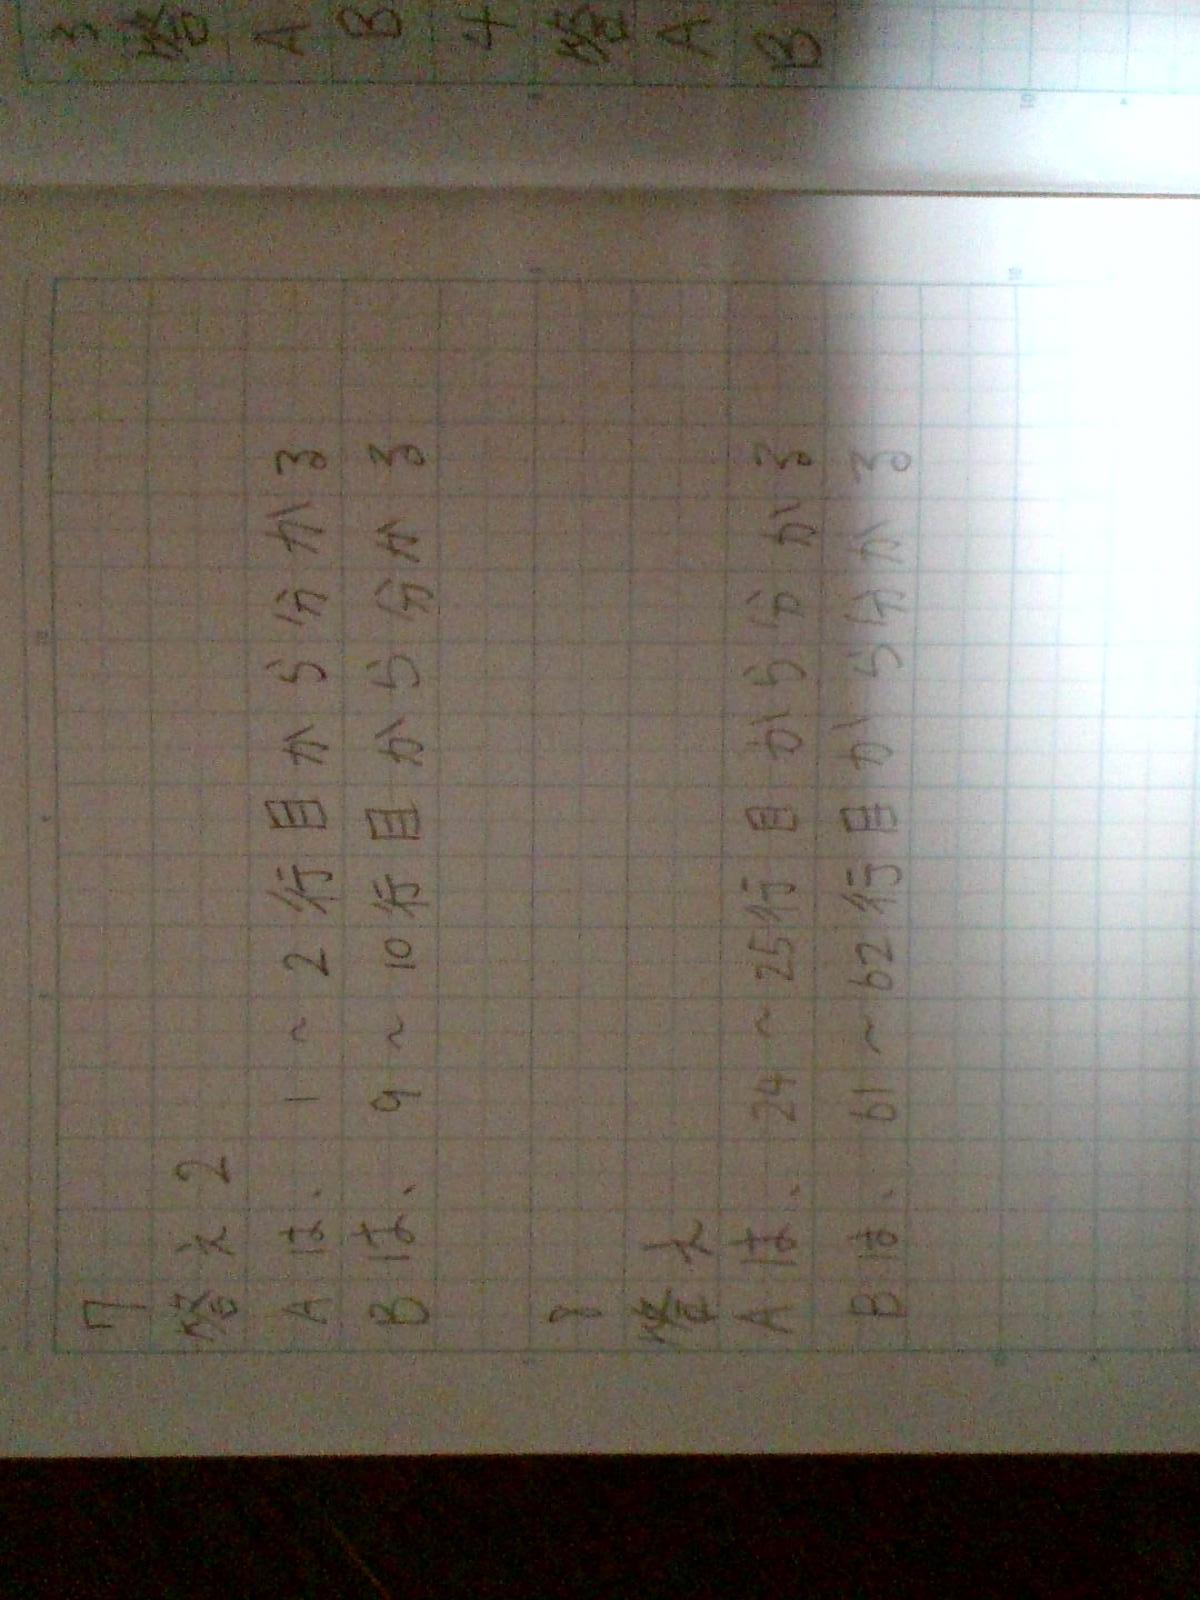 3
答
A
B
4
答
A
B
7
答え 2
Aは、1〜2行目から分かる
Bは、9〜10行目から分かる
8
答え
Aは、24〜25行目から分かる
Bは、61〜62行目から分かる